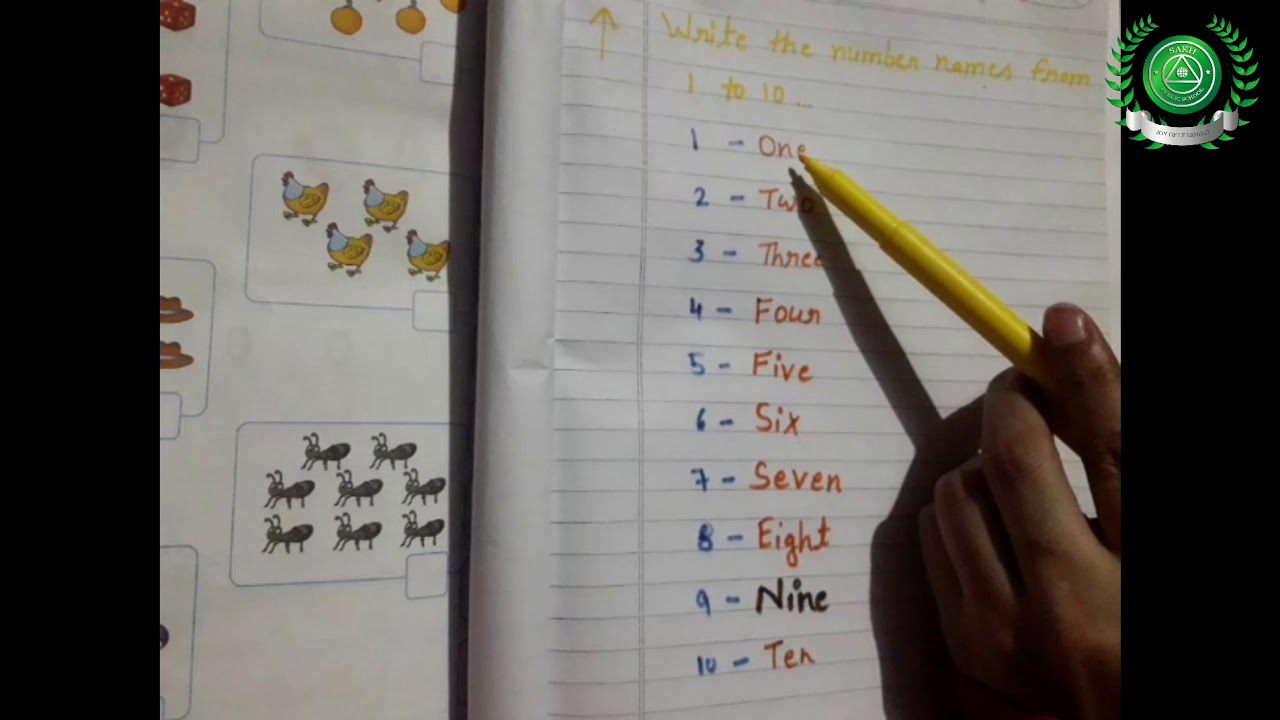 Write the number names from
1 to 10...
1 - One
2 - Two
3 - Three
4 - Four
5 - Five
6 - Six
7 - Seven
8 - Eight
9 - Nine
10 - Ten
SAKH
PUBLIC SCHOOL
JOY OF LEARNING